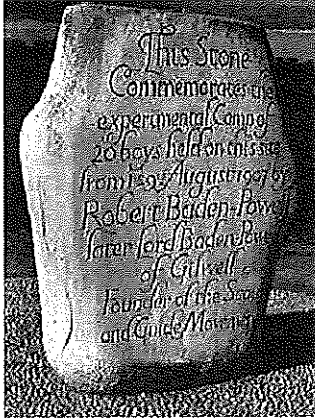 This Stone
Commemorates the
experimental Camp of
20 boys held on this site
from 1st-9th August 1907 by
Robert Baden-Powell
later Lord Baden-Powell
of Gilwell
Founder of the Scout
and Guide Movements